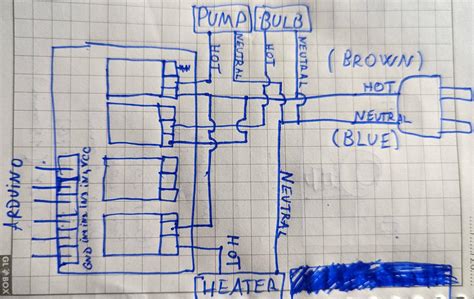 PUMP BULB
HOT
NEUTRAL
HOT
NEUTRAL
(BROWN)
HOT
NEUTRAL
(BLUE)
ARDUINO
GND IN1 IN2 IN3 IN4 VCC
NEUTRAL
HOT
HEATER